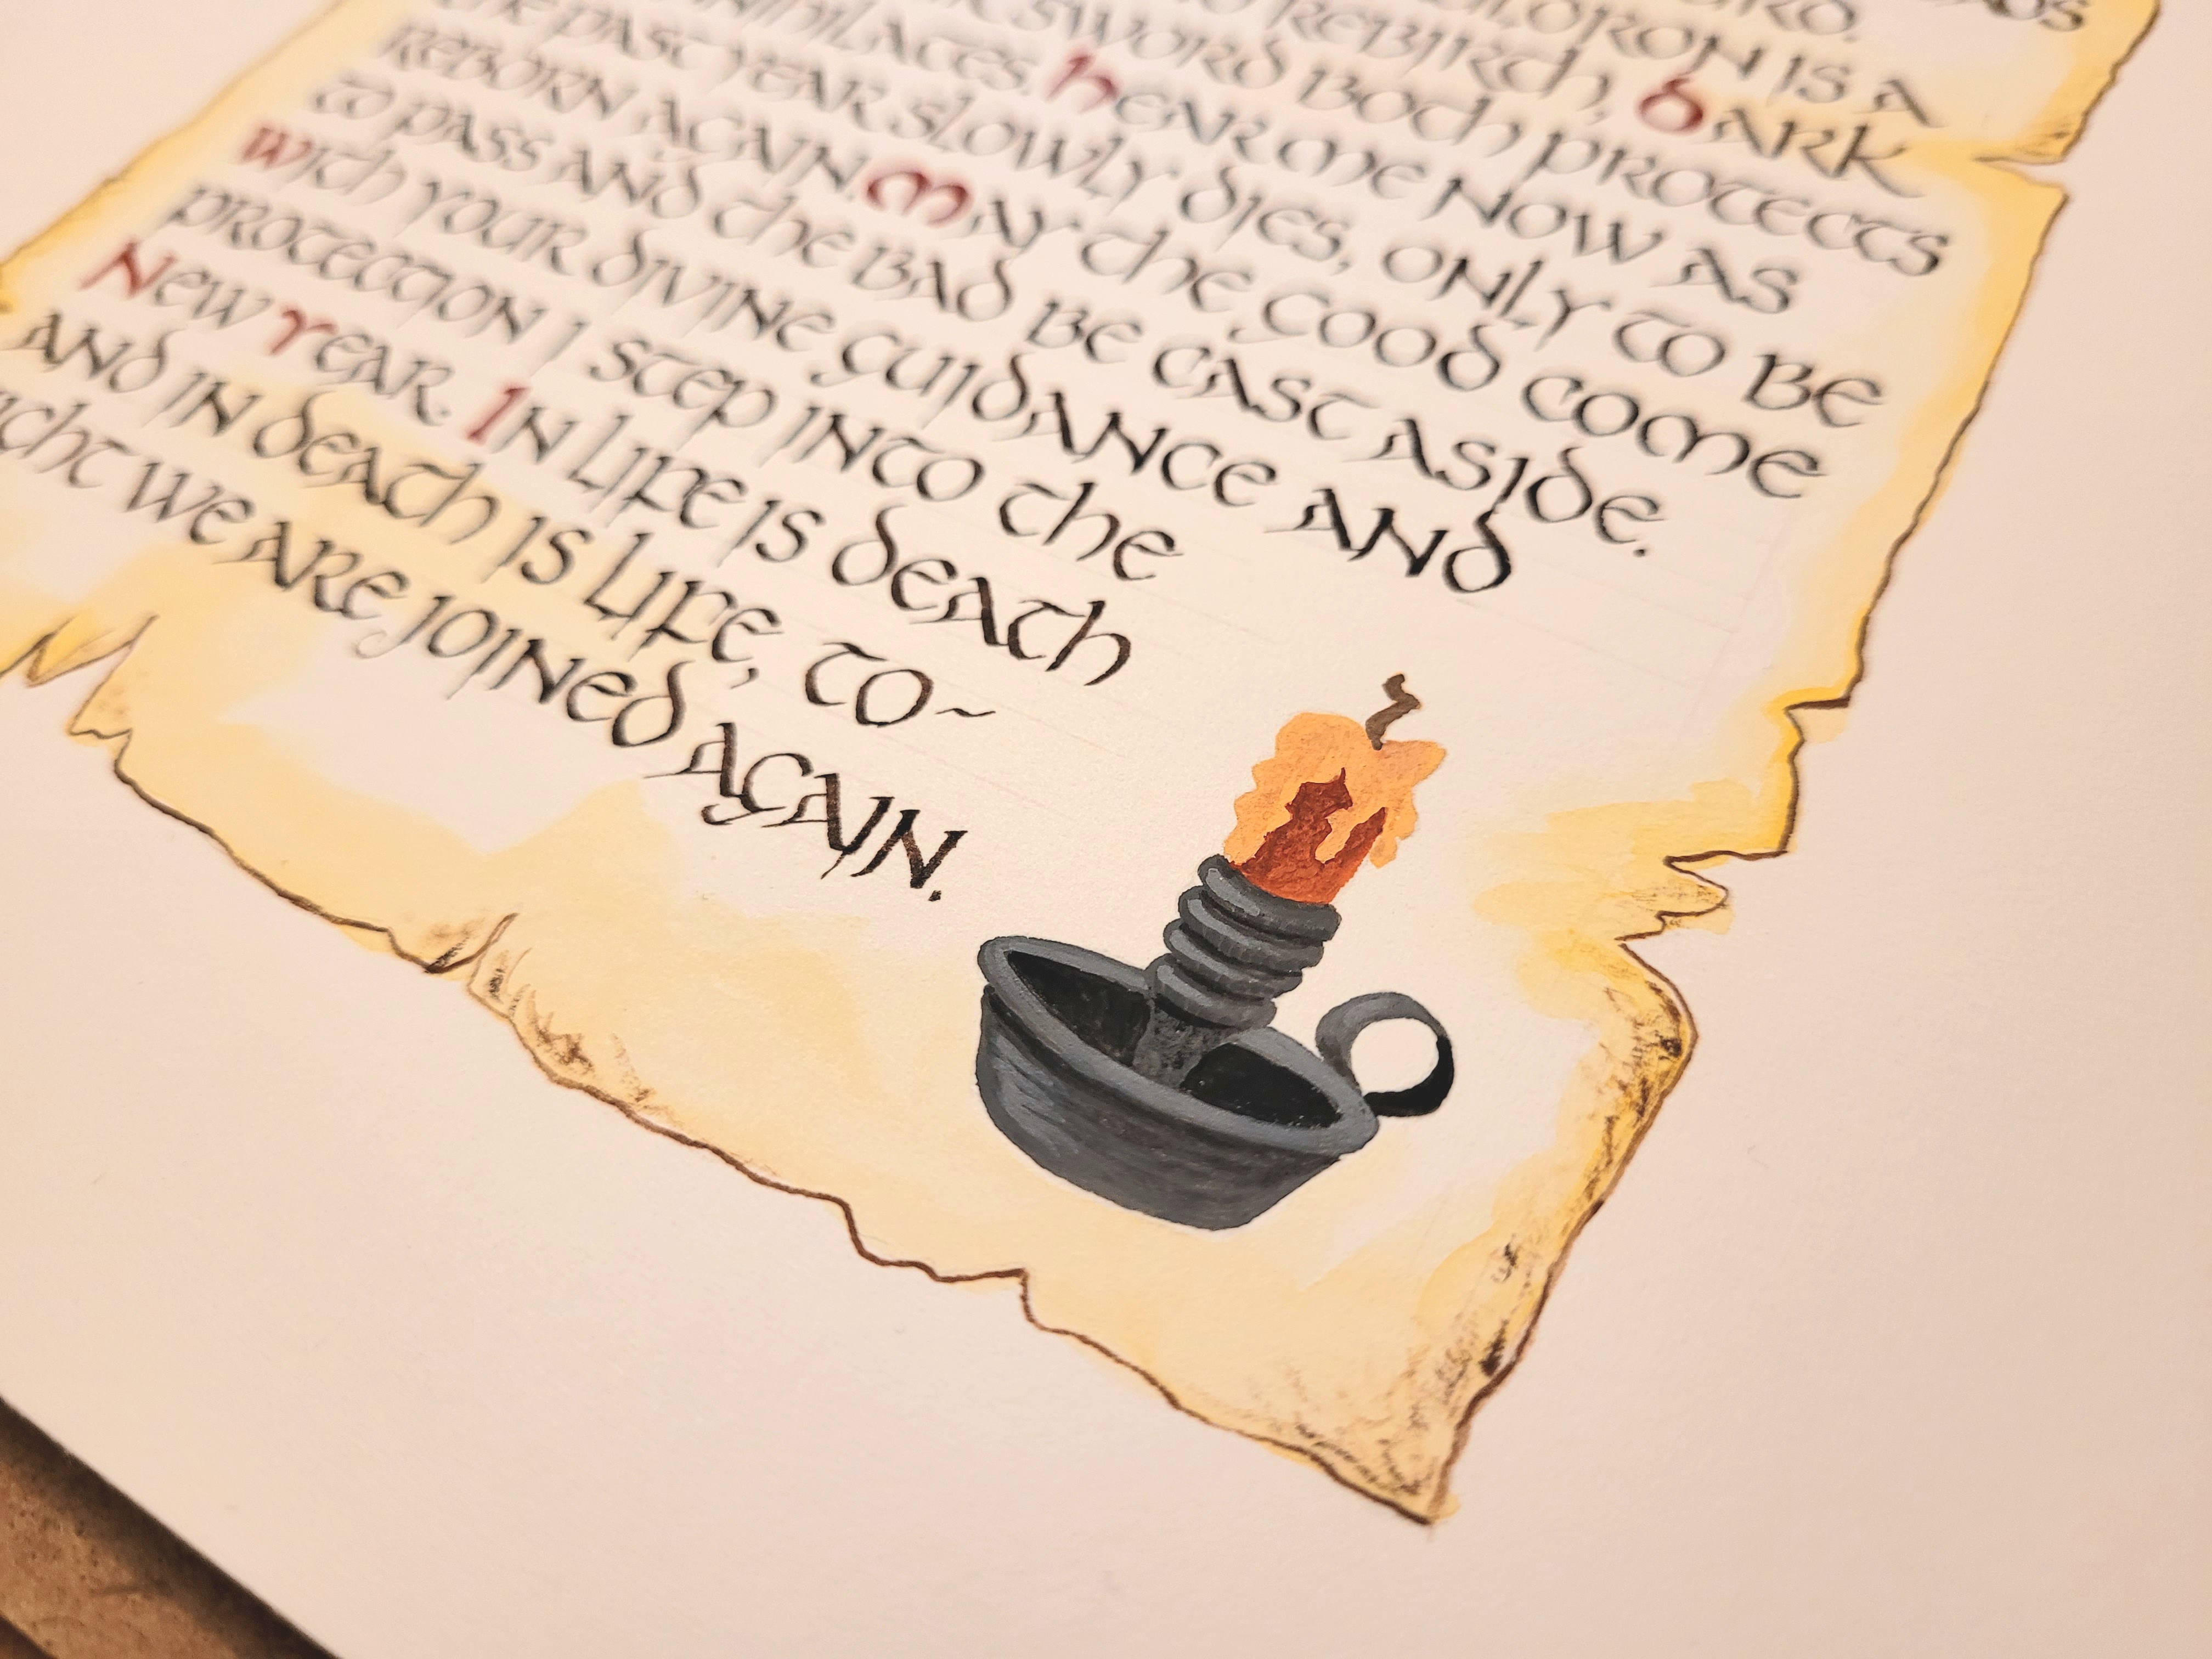 IS A
REBIRTH, DARK
SWORD BOTH PROTECTS
HEAR ME NOW AS
THE PAST YEAR SLOWLY DIES, ONLY TO BE
REBORN AGAIN. MAY THE GOOD COME
TO PASS AND THE BAD BE CAST ASIDE.
WITH YOUR DIVINE GUIDANCE AND
PROTECTION I STEP INTO THE
NEW YEAR. IN LIFE IS DEATH
AND IN DEATH IS LIFE, TO~
IGHT WE ARE JOINED AGAIN.